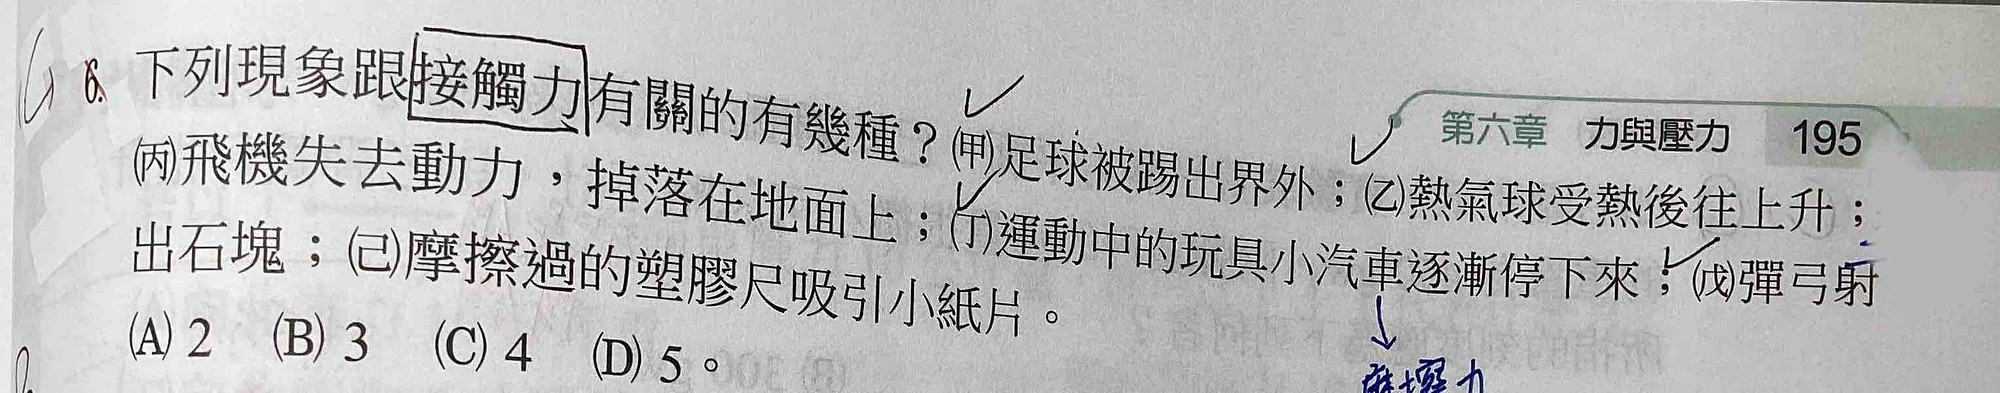 6. 下列現象跟接觸力有關的有幾種？㈙足球被踢出界外；㈚熱氣球受熱後往上升；
第六章 力與壓力 195
(丙)飛機失去動力，掉落在地面上；(丁)運動中的玩具小汽車逐漸停下來；(戊)彈弓射
出石塊；(己)摩擦過的塑膠尺吸引小紙片。
(A) 2 (B) 3 (C) 4 (D) 5。
摩擦力